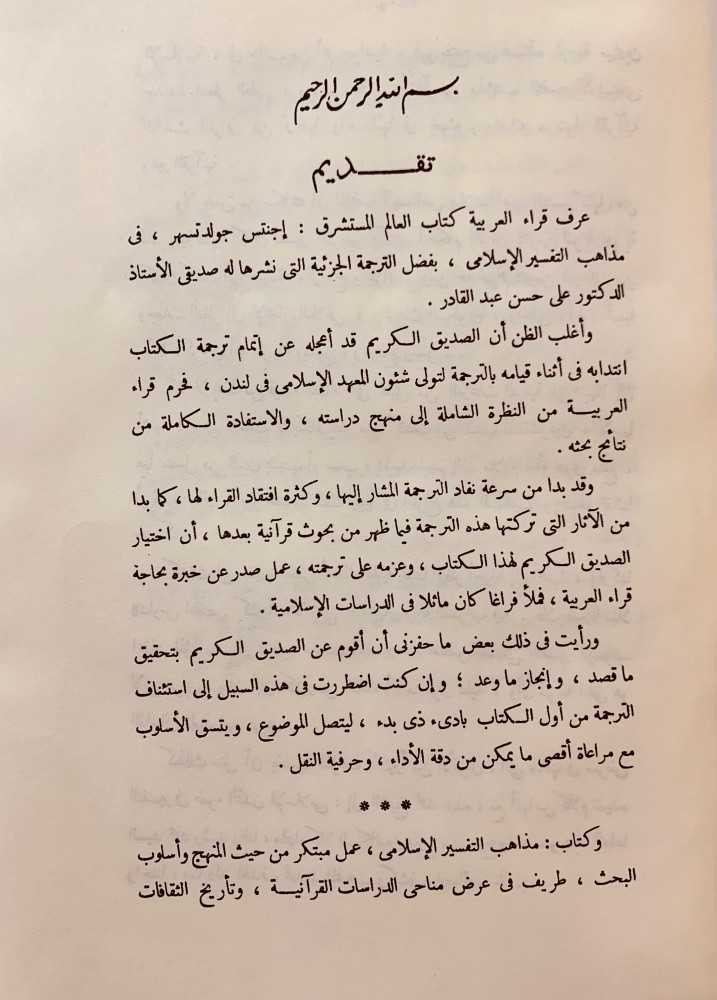 بسم الله الرحمن الرحيم
تقديم
عرف قراء العربية كتاب العالم المستشرق : إجنتس جولدتسهر ، فى
مذاهب التفسير الإسلامى ، بفضل الترجمة الجزئية التى نشرها له صديقى الأستاذ
الدكتور على حسن عبد القادر .
وأغلب الظن أن الصديق الكريم قد أعجله عن إتمام ترجمة الكتاب
انتدابه فى أثناء قيامه بالترجمة لتولى شئون المعهد الإسلامى فى لندن ، فحرم قراء
العربية من النظرة الشاملة إلى منهج دراسته ، والاستفادة الكاملة من
نتائج بحثه .
وقد بدا من سرعة نفاد الترجمة المشار إليها ، وكثرة افتقاد القراء لها ، كما بدا
من الآثار التى تركتها هذه الترجمة فيما ظهر من بحوث قرآنية بعدها ، أن اختيار
الصديق الكريم لهذا الكتاب ، وعزمه على ترجمته ، عمل صدر عن خبرة بحاجة
قراء العربية ، فملأ فراغا كان ماثلا فى الدراسات الإسلامية .
ورأيت فى ذلك بعض ما حفزنى أن أقوم عن الصديق الكريم بتحقيق
ما قصد ، وإنجاز ما وعد ؛ وإن كنت اضطررت فى هذه السبيل إلى استئناف
الترجمة من أول الكتاب بادىء ذى بدء ، ليتصل الموضوع ، ويتسق الأسلوب
مع مراعاة أقصى ما يمكن من دقة الأداء ، وحرفية النقل .
* * *
وكتاب : مذاهب التفسير الإسلامى ، عمل مبتكر من حيث المنهج وأسلوب
البحث ، طريف فى عرض مناحى الدراسات القرآنية ، وتأريخ الثقافات